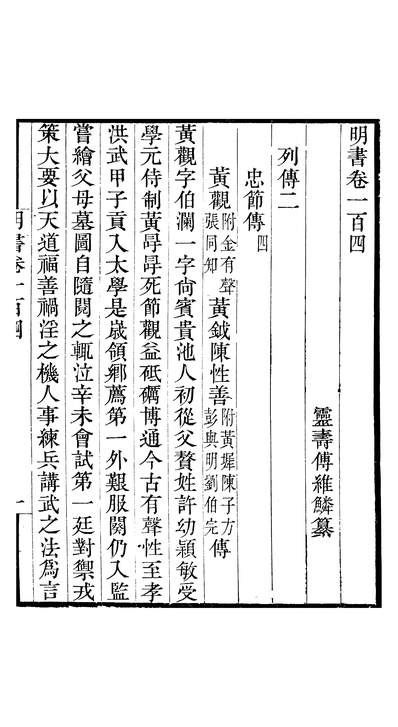 明書卷一百四
靈壽傅維鱗纂
列傳二
忠節傳四
黃觀附金有聲張同知黃鉞陳性善附黃墀陳子方彭與明劉伯完傳
黃觀字伯瀾一字尙賓貴池人初從父贅姓許幼穎敏受
學元侍制黃冔冔死節觀益砥礪博通今古有聲性至孝
洪武甲子貢入太學是歲領鄉薦第一外艱服闋仍入監
嘗繪父母墓圖自隨閱之輒泣辛未會試第一廷對禦戎
策大要以天道福善禍淫之機人事練兵講武之法爲言
明書卷一百四
一